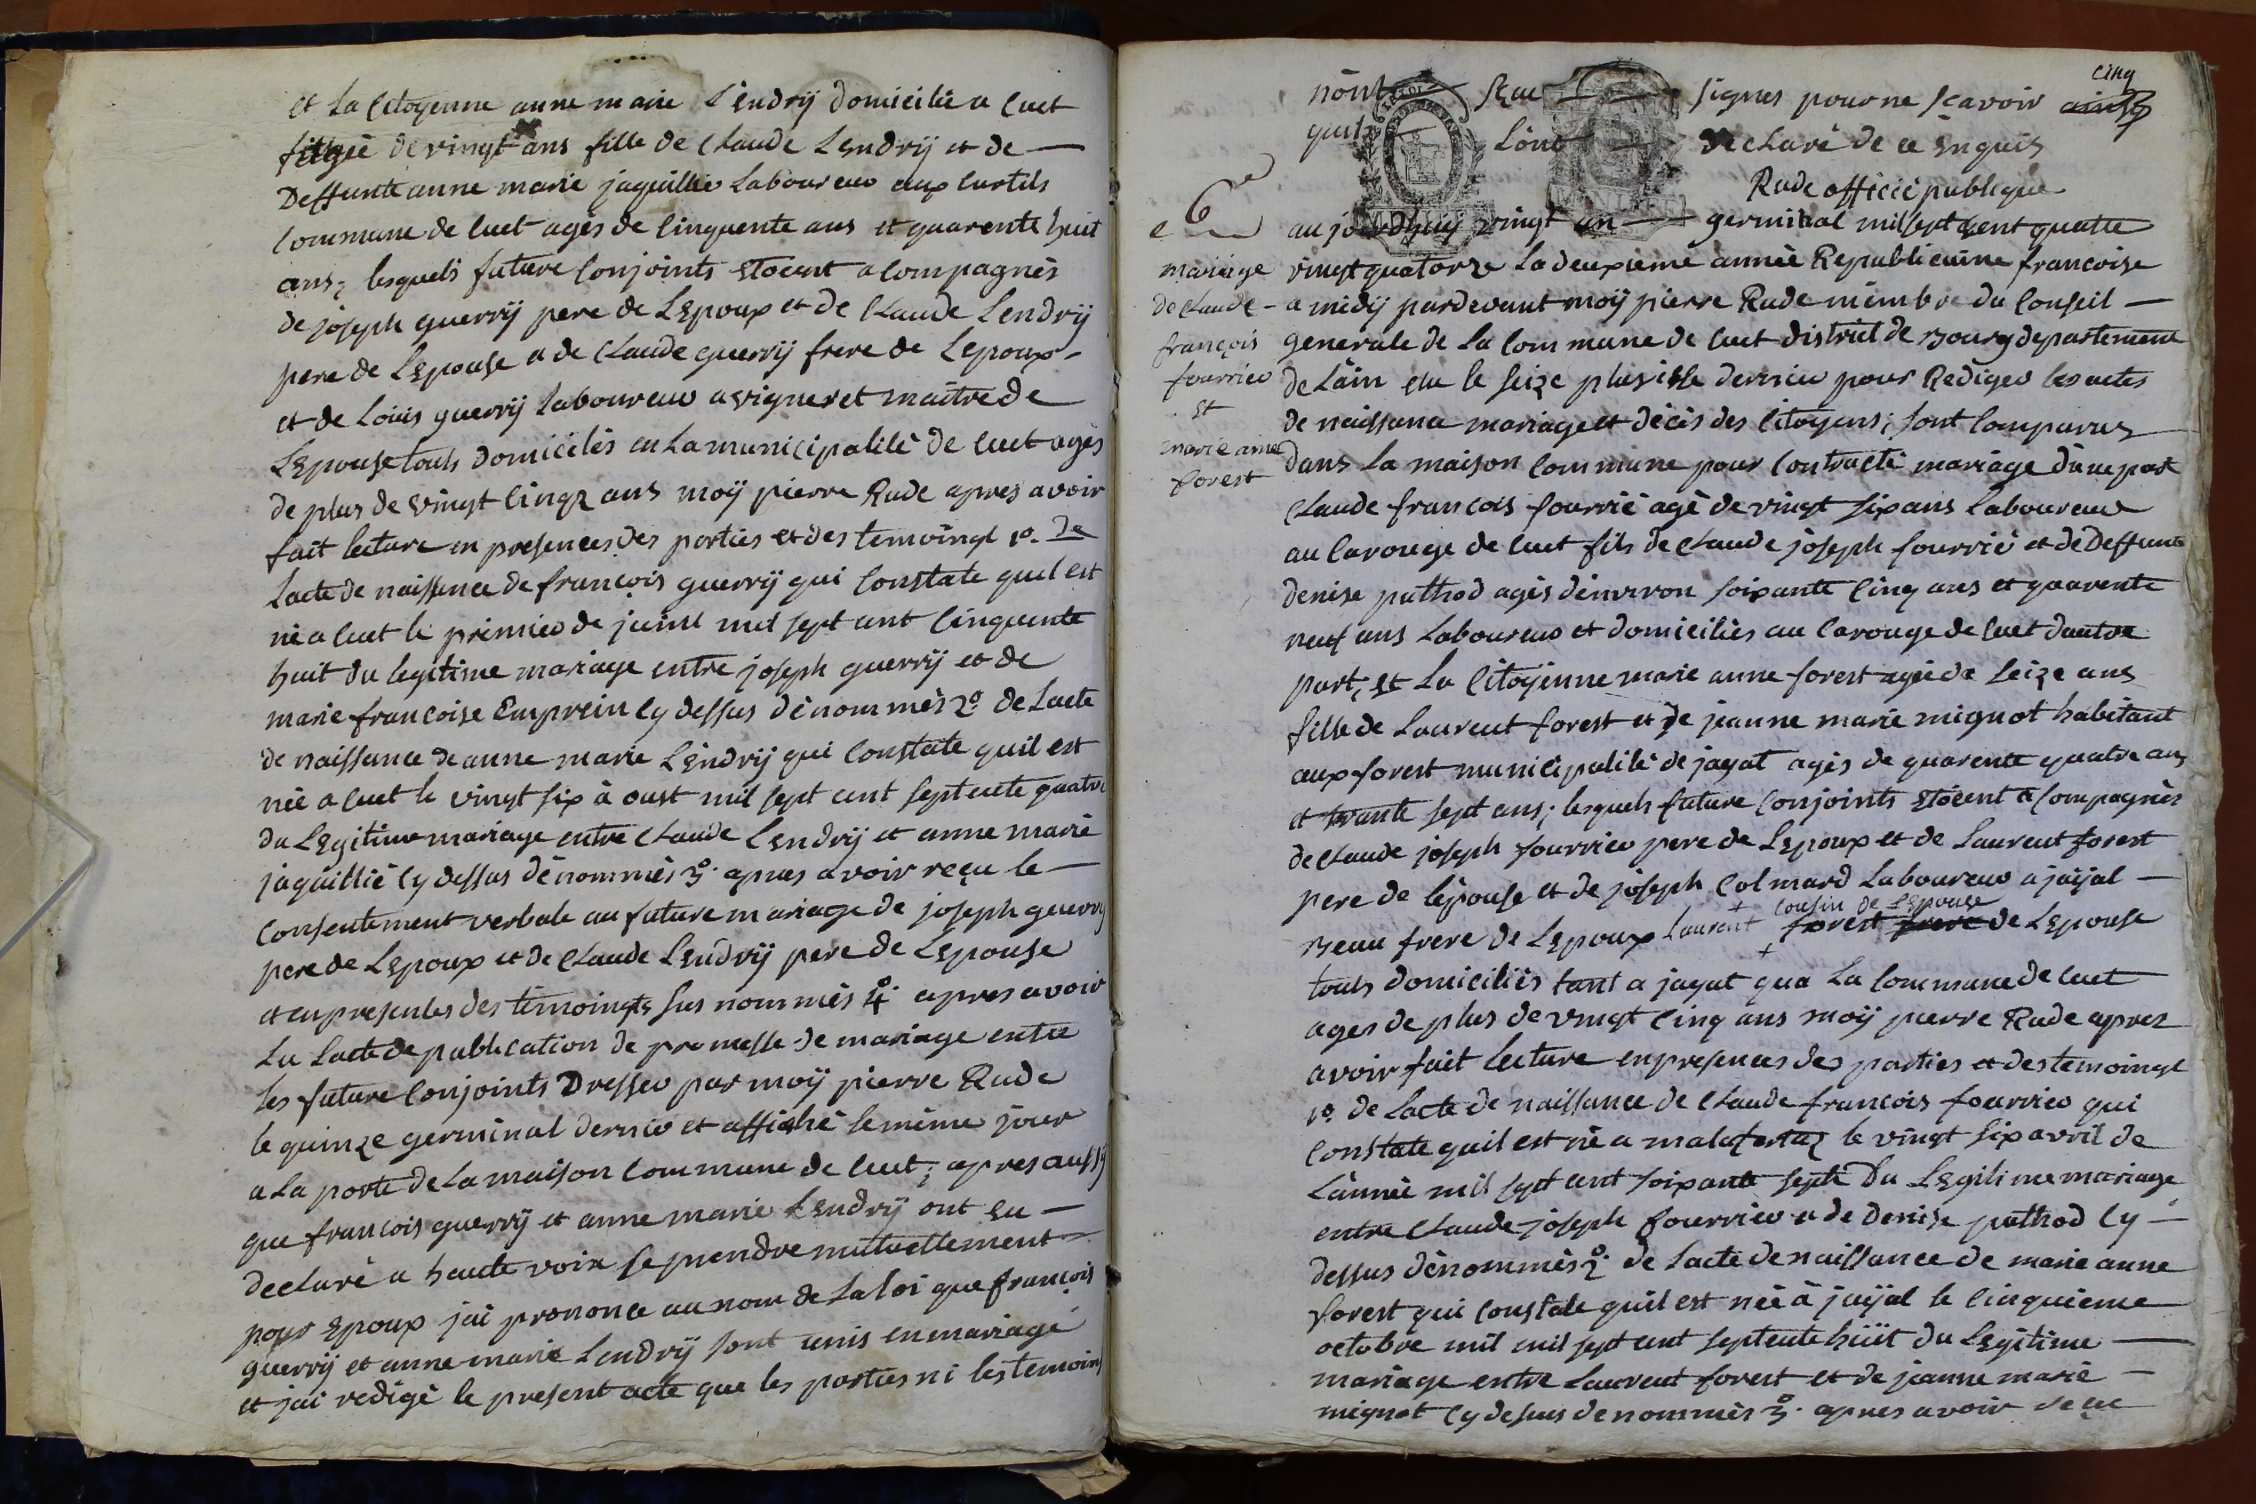 et La Citoyenne anne marie Lendrÿ domicilié a Cuet
agé de vingt ans fille de Claude Lendrÿ et de —
Deffunte anne marie jaquillié Laboureur aux Curtils
Commune de Cuet agés de Cinquente ans et quarente huit
ans; lesquels future Conjoints Etoient acompagnés
de joseph guerrÿ pere de Lepoux et de Claude Lendrÿ
pere de Lepouse a de Claude guerrÿ frere de Lepoux
et de Louis guerrÿ laboureur a vigneret maitre de
Lepouse touts domiciliés en La municipalité de Cuet agés
de plus de vingt Cinq ans moÿ pierre Rude apres avoir
fait lecture en presences des parties et des temoingt 1º. de
Lacte de naissance de françois guerrÿ qui Constate quil est
né a Cuet le premier de juint mil sept cent Cinquente
huit du legitime mariage entre joseph guerrÿ et de
marie francoise Emprein Cy dessus dénommés 2º. de Lacte
de naissance de anne marie Lendrÿ qui Constate quil est
née a Cuet le vingt six à oust mil sept cent septente quatre
du Legitime mariage entre Claude Lendrÿ et anne marie
jaquillié Cy dessus dénommés 3º. apres avoir reçu le —
Consentement verbale au future mariage de joseph guerrÿ
pere de Lepoux et de Claude Lendrÿ pere de Lepouse
et en presentes des temoingts sus nommés 4º. apres avoir
Lu Lacte de publication de promesse de mariage entre
les future Conjoints Dresser par moÿ pierre Rude
le quinze germinal dernier et affiché le même jour
a La porte de La maison Commune de Cuet; apres aussÿ
que francois guerrÿ et anne marie Lendrÿ ont eu —
declaré a haute voix se prendre mutuellement
pour Epoux jai prononce au nom de La loi que françois
guerrÿ et anne marie Lendrÿ sont unis en mariage
et jai redigé le present acte que les parties ni les temoins
cinq
nont signes pour ne scavoir
declaré de ce Enquis
Rude officié publique
6e
mariage
de Claude
françois
fourrier
et
marie anne
forest
aujourdhuÿ vingt un — germinal mil sept cent quatre
vingt quatorze La deuxieme année Republicaine francoise
a midÿ pardevant moÿ pierre Rude membre du Conseil —
generale de La Commune de Cuet district de Bourg departement
de Lain elu le seize pluviose dernier pour Rediger les actes
de naissance mariage et décés des Citoyens; sont Comparus
dans La maison Commune pour Contracté mariage dune part
Claude francois fourrié agé de vingt six ans Laboureur
au Carouge de Cuet fils de Claude joseph fourrié et de Deffunte
denise puthod agés denviron soixante Cinq ans et quarente
neuf ans Laboureur et domiciliés au Carouge de Cuet dautre
part, et La Citoyenne marie anne forest agée de seize ans
fille de Laurent forest et de jeanne marie mignot habitant
aux forest municipalité de jayat agés de quarente quatre ans
et trante sept ans; lesquels future Conjoints Etoient a Compagnés
de Claude joseph fourrier pere de Lepoux et de Laurent forest
pere de lépouse et de joseph Colmard Laboureur a jaÿat —
Beau frere de Lepoux Laurent + forest frere de Lepouse
+ cousin de Lepouse
touts domiciliés tant a jayat qua La Commune de Cuet
ages de plus de vingt Cinq ans moÿ pierre Rude apres
avoir fait Lecture en presences des parties et des temoingt
1º. de Lacte de naissance de Claude francois fourrier qui
Constate quil est né a malafretaz le vingt six avril de
Lannée mil sept cent soixante sept Du Legitime mariage
entre Claude joseph fourrier a de Denise puthod Cy —
dessus dénommés 2º. de Lacte de naissance de marie anne
forest qui Constate quil est née à jaÿat le Cinquieme
octobre mil mil sept cent septente huit du Legitime —
mariage entre Laurent forest et de jeanne marie —
mignot Cy desus denommés 3º. apres avoir reçu